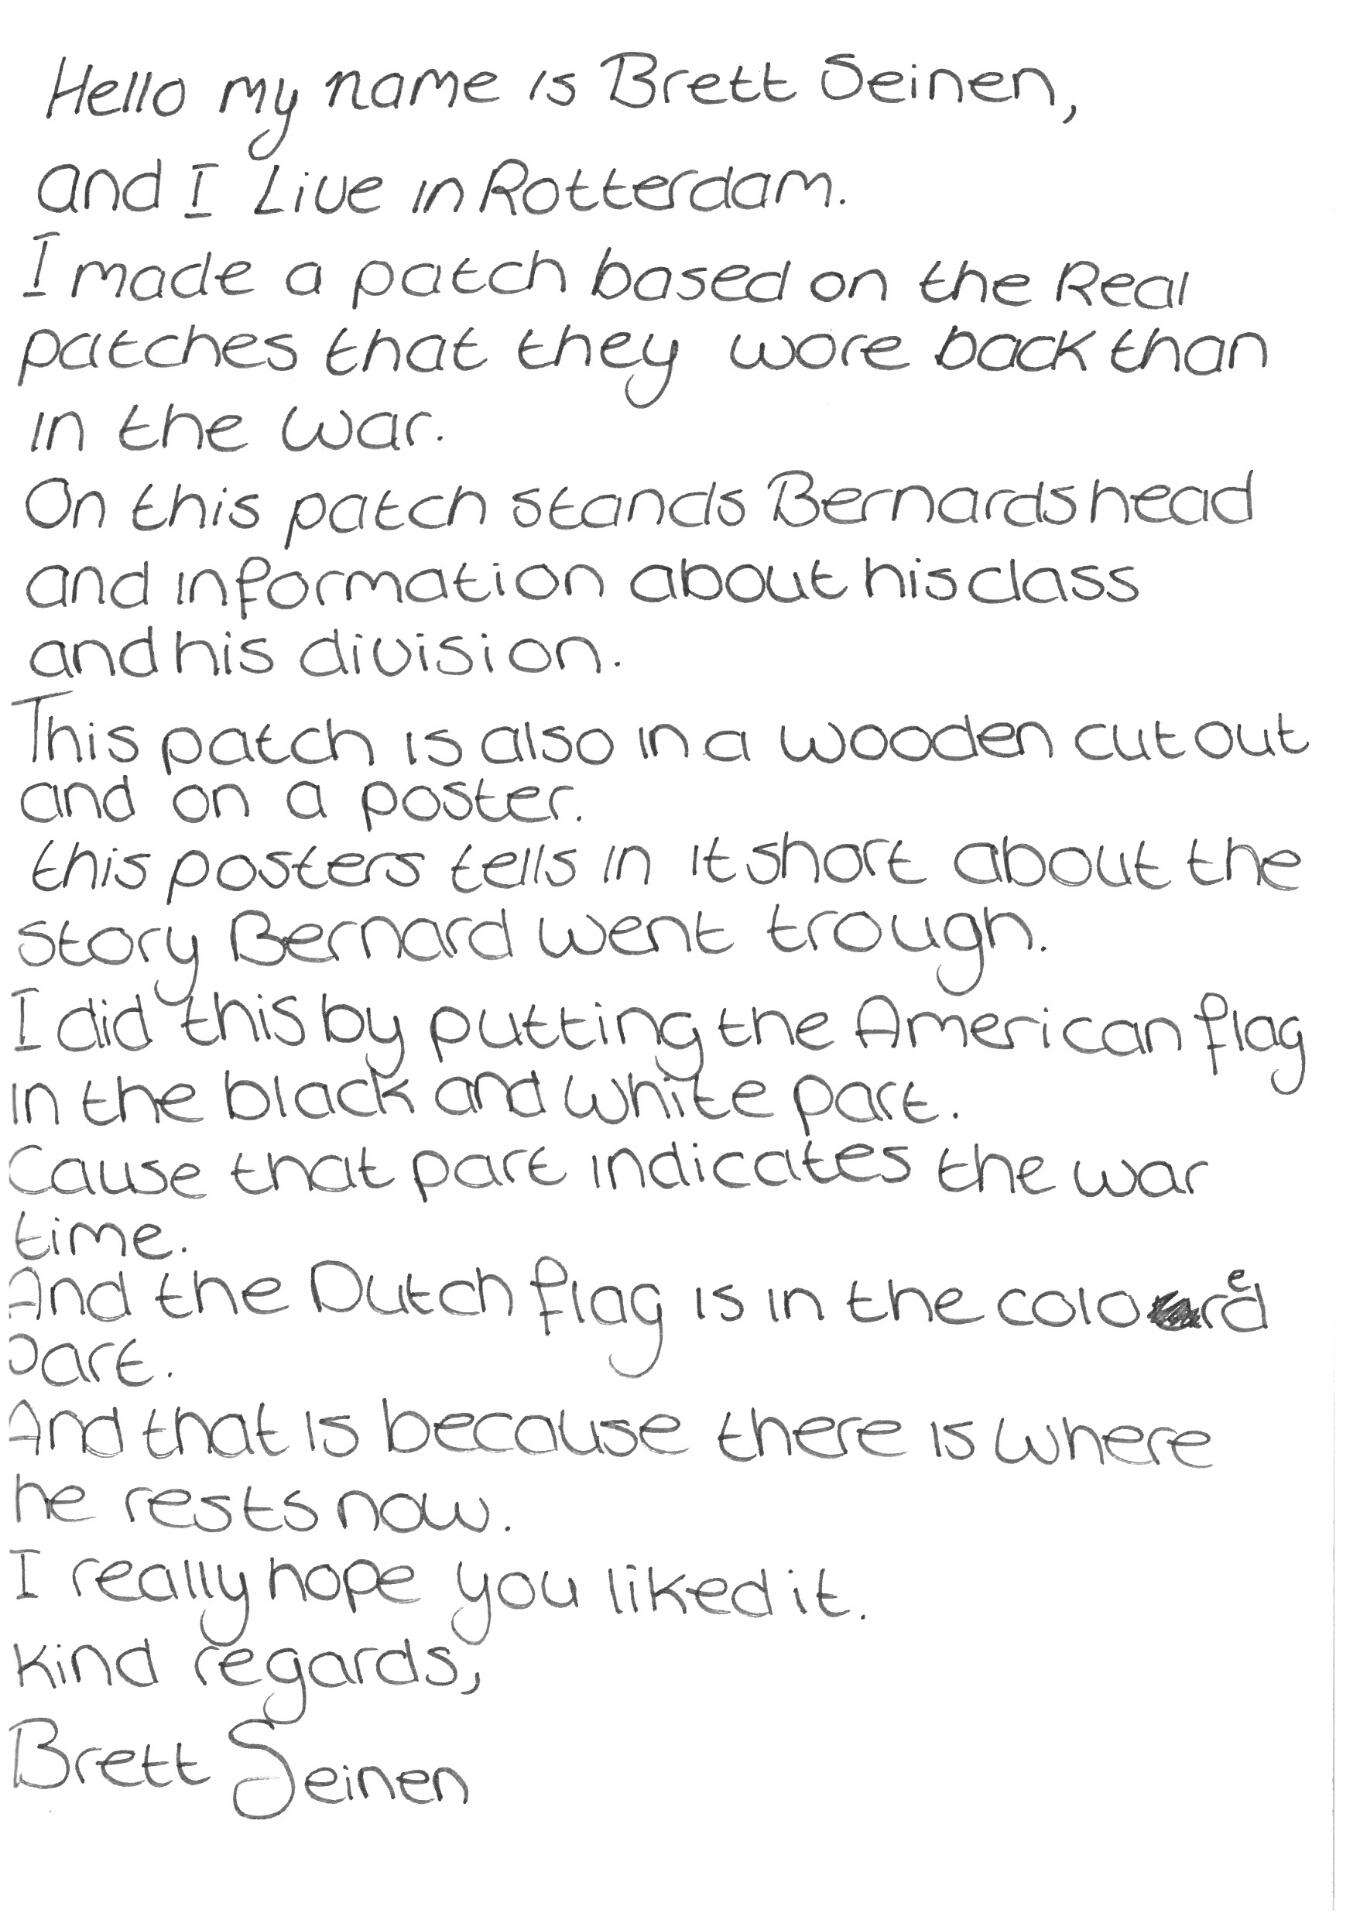 Hello my name is Brett Seinen,
and I Live in Rotterdam.
I made a patch based on the Real
patches that they wore back than
in the war.
On this patch stands Bernards head
and information about his class
and his division.
This patch is also in a wooden cut out
and on a poster.
this posters tells in it short about the
story Bernard went trough.
I did this by putting the American flag
in the black and white part.
Cause that part indicates the war
time.
And the Dutch flag is in the colored
part.
And that is because there is where
he rests now.
I really hope you liked it.
Kind regards,
Brett Seinen